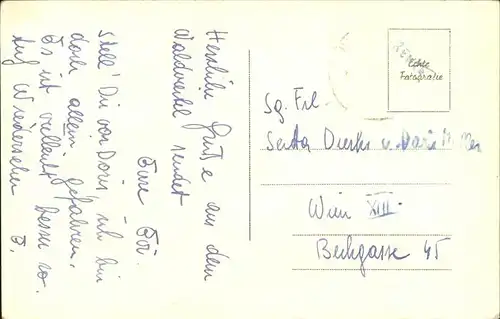 Herzliche Grüsse aus dem
Waldviertel sendet
Eure
Stell' Dir vor Doris, ich bin
doch allein gefahren.
Es ist vielleicht besser so.
Auf Wiedersehen
E.
Echte
Fotografie
Sg. Frl.
Senta Dierks u. Doris
Wien XIII.
Beckgasse 45